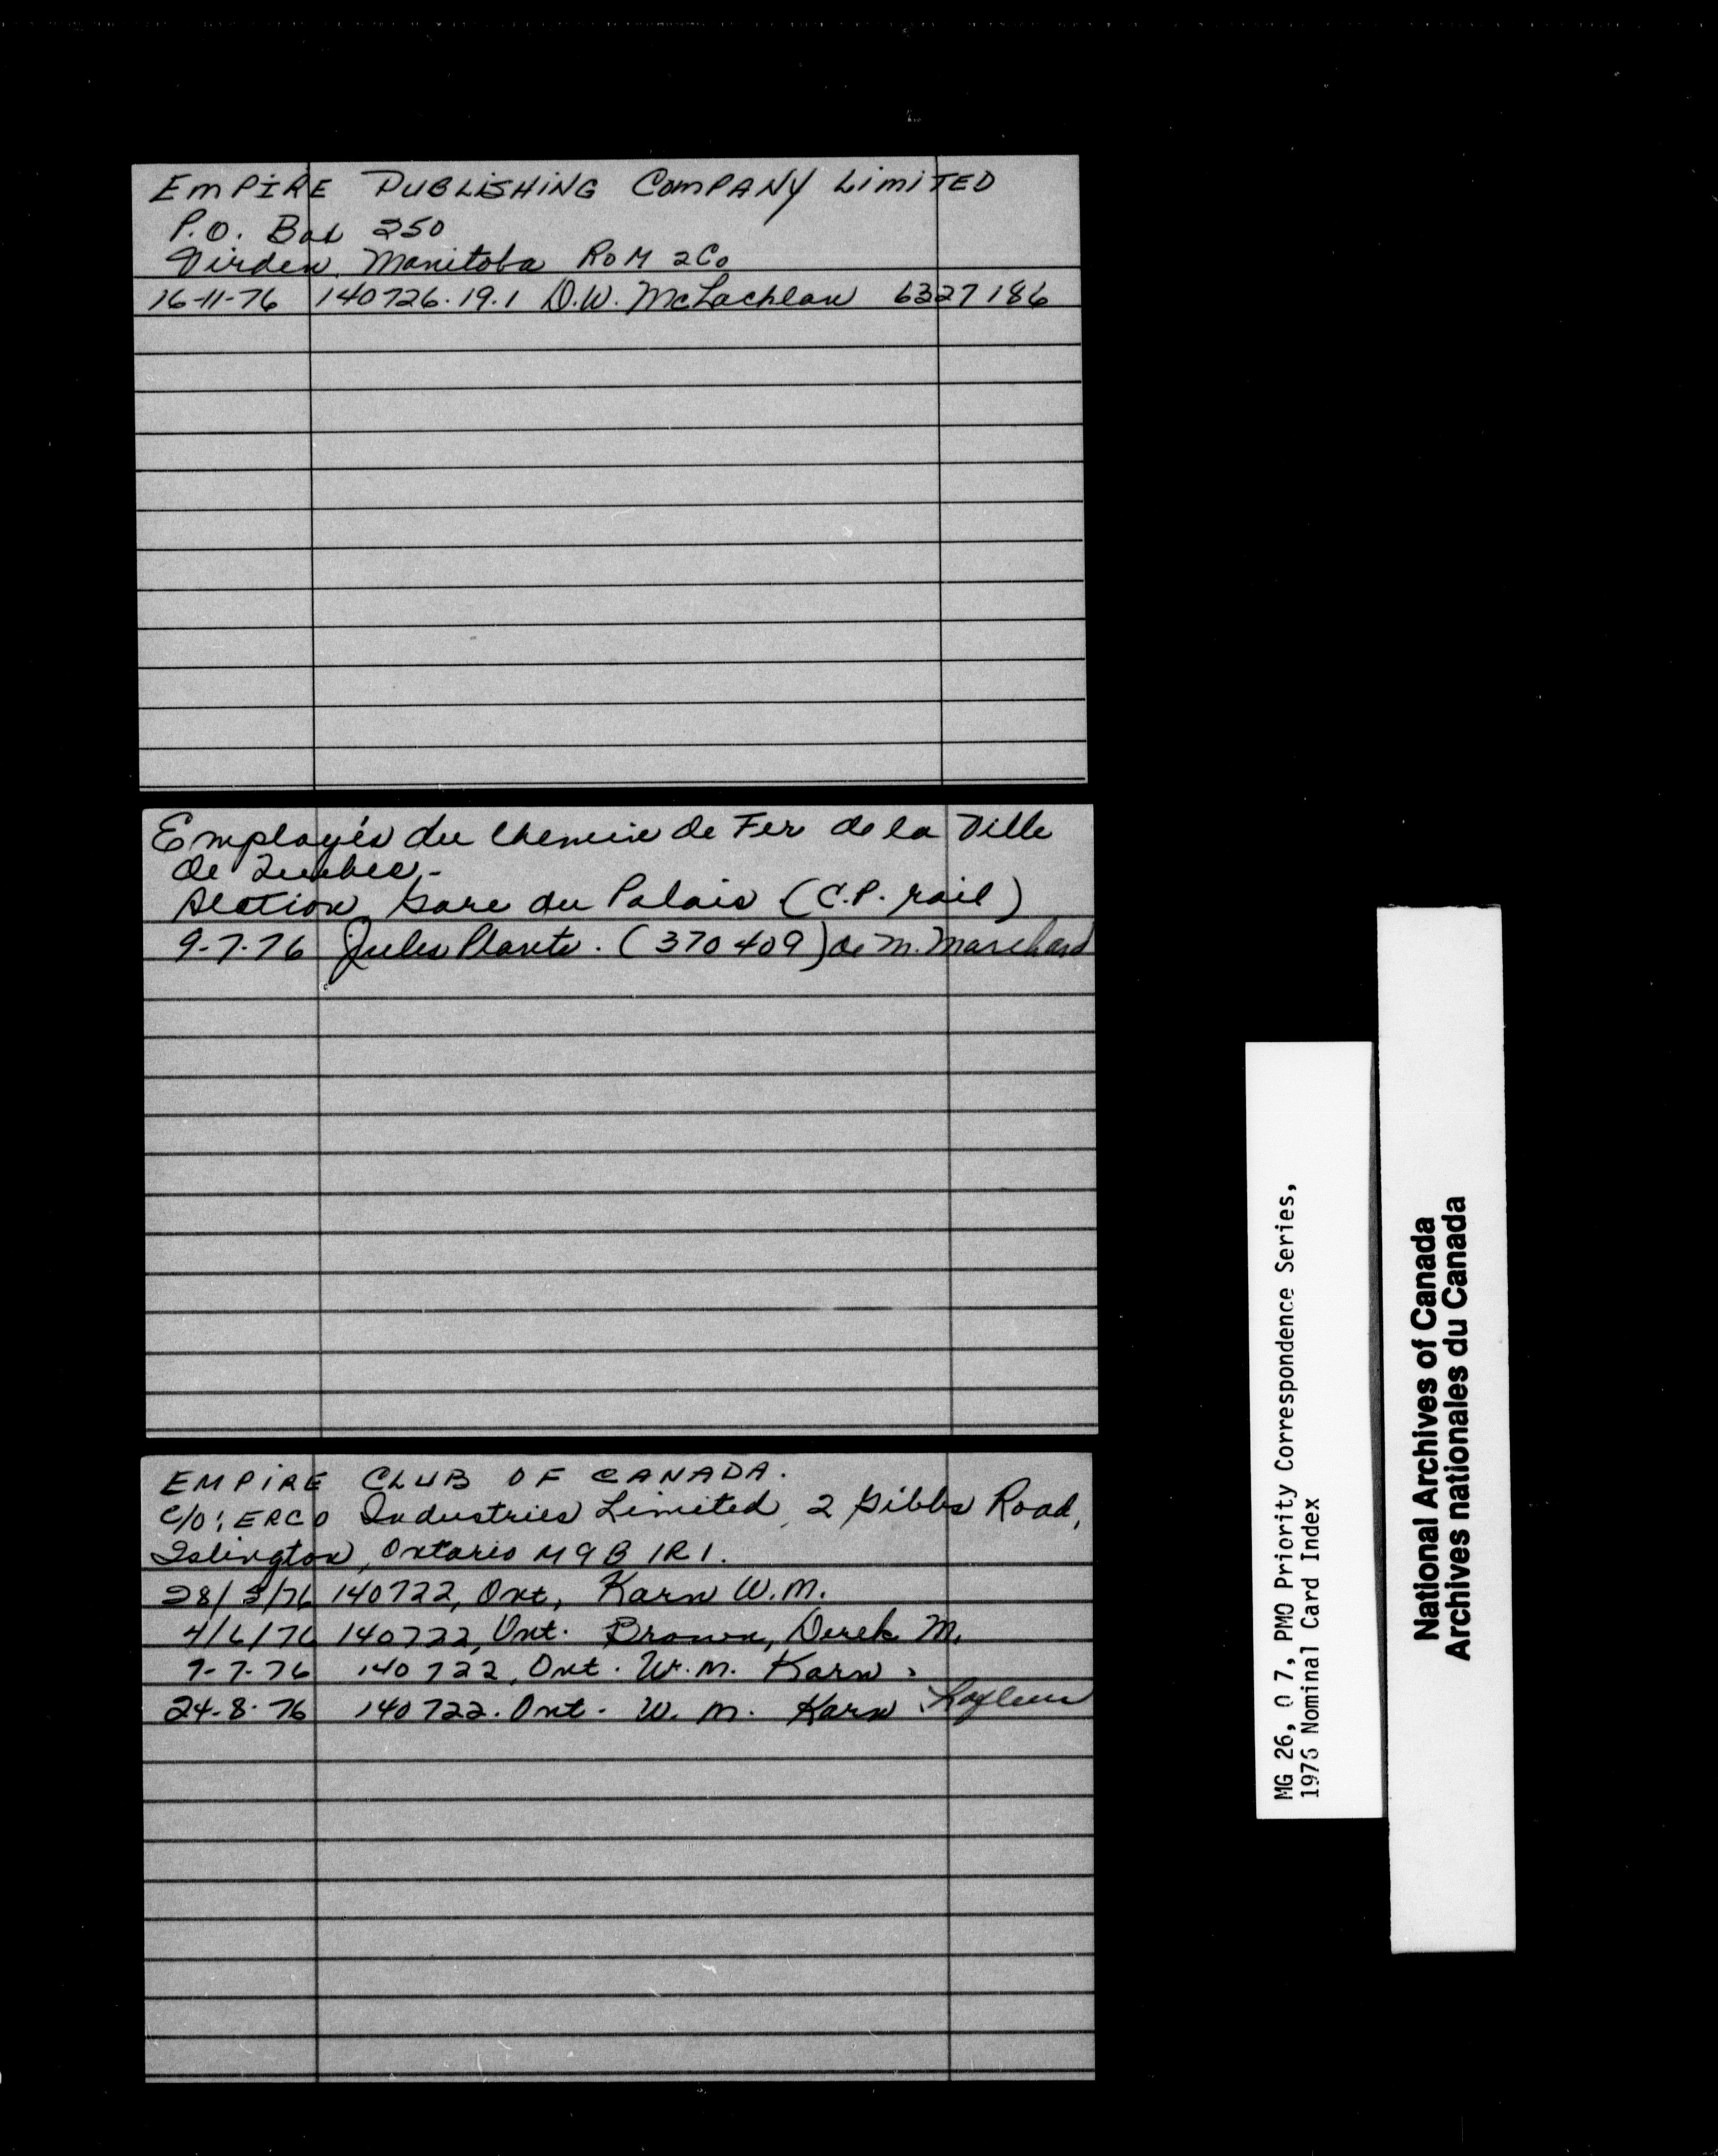 EMPIRE PUBLISHING COMPANY LIMITED
P.O. Box 250
Virden, Manitoba R0M 2C0
16-11-76 140726.19.1 D.W. McLachlan 6327186
Employés du Chemin de Fer de la Ville
de Quebec.-
Station Gare du Palais (C.P. rail)
9-7-76 Jules Plante. (370409) de M. Marchand
EMPIRE CLUB OF CANADA.
C/O: ERCO Industries Limited, 2 Gibbs Road,
Islington, Ontario M9B 1R1.
28/5/76 140722, Ont, Karn W.M.
4/6/76 140722, Ont. Brown, Derek M.
9-7-76 140722, Ont. W.M. Karn.
24-8-76 140722. Ont. W. M. Karn
MG 26, O 7, PMO Priority Correspondence Series,
1976 Nominal Card Index
National Archives of Canada
Archives nationales du Canada